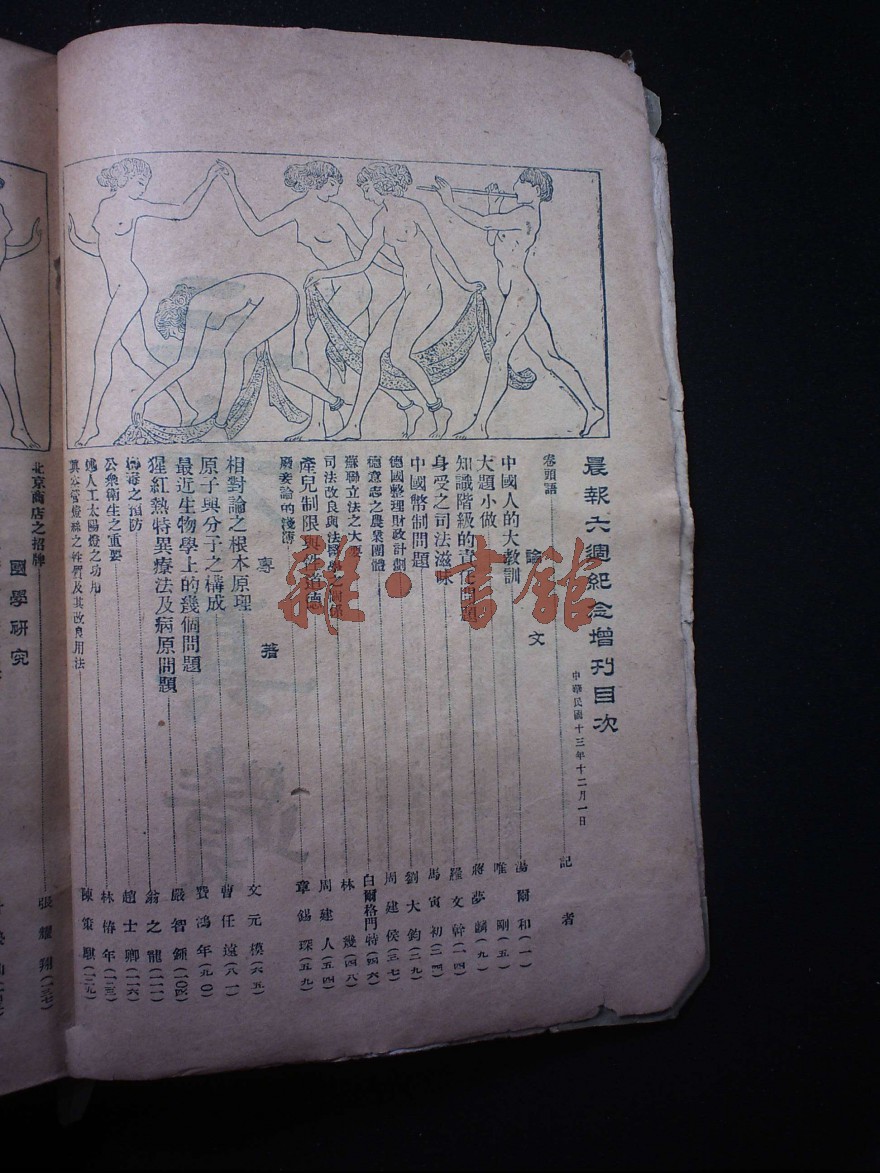 晨報六週紀念增刊目次
中華民國十三年十二月一日
卷頭語 記者
論文
中國人的大教訓 湯爾和(一)
大題小做 唯剛(五)
知識階級的責任問題 蔣夢麟(九)
身受之司法滋味 羅文幹(一四)
中國幣制問題 馬寅初(二四)
德國整理財政計劃 劉大鈞(二九)
德意志之農業團體 周建侯(三七)
蘇聯立法之大要 白爾格門特(四六)
司法改良與法醫學之關係 林幾(四八)
產兒制限與性道德 周建人(五四)
廢妾論的淺薄 章錫琛(五九)
專著
相對論之根本原理 文元模(六五)
原子與分子之構成 曹任遠(八一)
最近生物學上的幾個問題 費鴻年(九〇)
猩紅熱特異療法及病原問題 嚴智鍾(一〇四)
梅毒之預防 翁之龍(一一一)
公衆衛生之重要 趙士卿(一一六)
述人工太陽燈之功用 林椿年(一二三)
真空管燈絲之性質及其改良用法 陳策騏(一二九)
國學研究
北京商店之招牌 張耀翔(一三七)
雜·書館